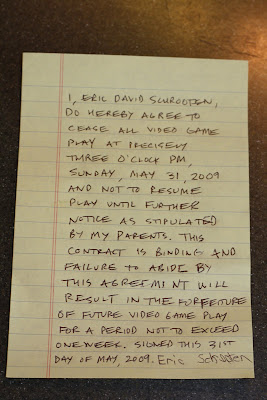 I, ERIC DAVID SCHROOTEN,
DO HEREBY AGREE TO
CEASE ALL VIDEO GAME
PLAY AT PRECISELY
THREE O'CLOCK PM,
SUNDAY, MAY 31, 2009
AND NOT TO RESUME
PLAY UNTIL FURTHER
NOTICE AS STIPULATED
BY MY PARENTS. THIS
CONTRACT IS BINDING AND
FAILURE TO ABIDE BY
THIS AGREEMENT WILL
RESULT IN THE FORFEITURE
OF FUTURE VIDEO GAME PLAY
FOR A PERIOD NOT TO EXCEED
ONE WEEK. SIGNED THIS 31ST
DAY OF MAY, 2009. Eric